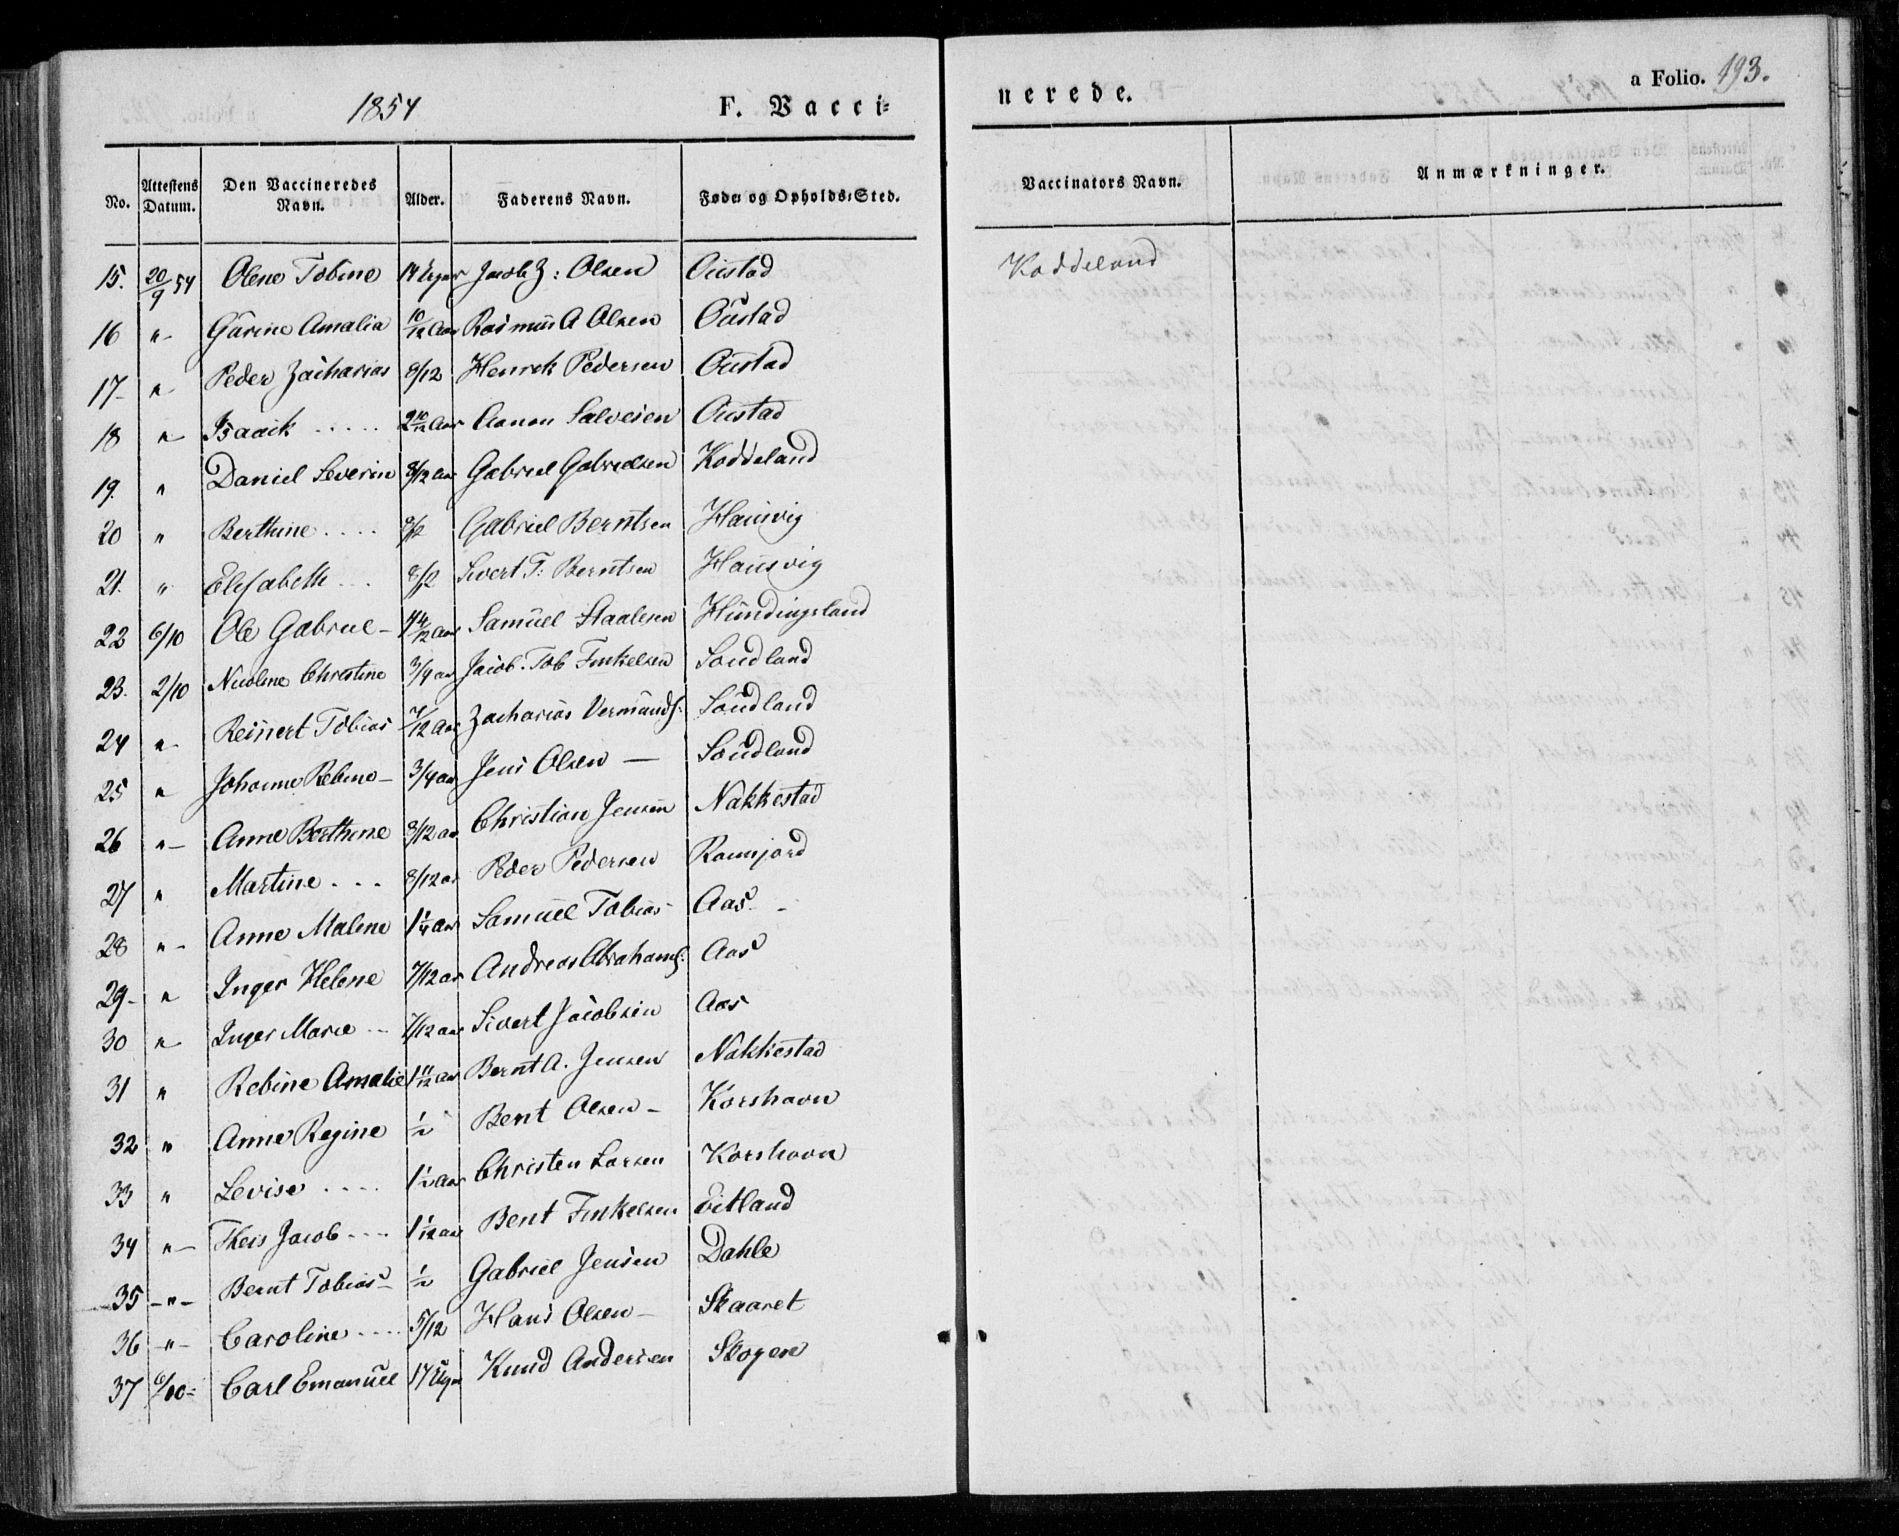 1854 F. Vacci=
nerede. a Folio. 193.
No. Attestens Datum. Den Vaccineredes Navn. Alder. Faderens Navn. Føde: og Opholds:Sted. Vaccinators Navn. Anmærkninger.
15. 20/9 54 Olene Tobine 14 Uger Jacob Z: Olsen Oustad Koddeland
16 " Gurine Amalia 10/12 Aar Rasmus A Olsen Oustad
17- " Peder Zacharias 8/12 Henrek Pedersen Oustad
18 " Isaaik ..... 2 10/12 Aar Aanon Salvesen Oustad
19. " Daniel Severin 8/12 aar Gabriel Gabrielsen Koddeland
20 " Berthine .... 8/12 Gabriel Berntsen Hausvig
21. " Elisabeth ... 8/12 Sivert T: Berntsen Hausvig
22 6/10 Ole Gabriel - 1 4/12 aar Samuel Staalesen Hundingsland
23. 2/10 Nicoline Christine 3/4 aar Jacob. Tob Finkelsen Soudland
24 " Reinert Tobias 7/12 Aar Zacharias Vermunds: Soudland
25 " Johanne Rebine - 3/4 aar Jens Olsen — Soudland
26 " Anne Berthine 8/12 aar Christian Jensen Nakkestad
27 " Martine ... 8/12 ar Peder Pedersen Raunjord
28 " Anne Malene 1 1/4 aar Samuel Tobias Aas.
29- " Inger Helene 7/12 ar Andreas Abrahams: Aas
30 " Inger Marie 7/12 aar Sivert Jacobsen Aas
31 " Rebine Amalie 1 11/12 aar Bernt A. Jensen Nakkestad
32 " Anne Regine 1/2 Bent Olsen - Korshavn
33 " Levise .... 1 1/2 aar Christen Larsen Korshavn
34 " Theis Jacob ... 1 1/12 aar Bent Finkelsen Eitland
35 -"- Bernt Tobias - 1/2 Gabriel Jensen Dahle
36 -"- Caroline .... 5/12 Hans Olsen - Skaaret
37 6/10 = Carl Emanuel 17 Uger Knud Andersen Skogen